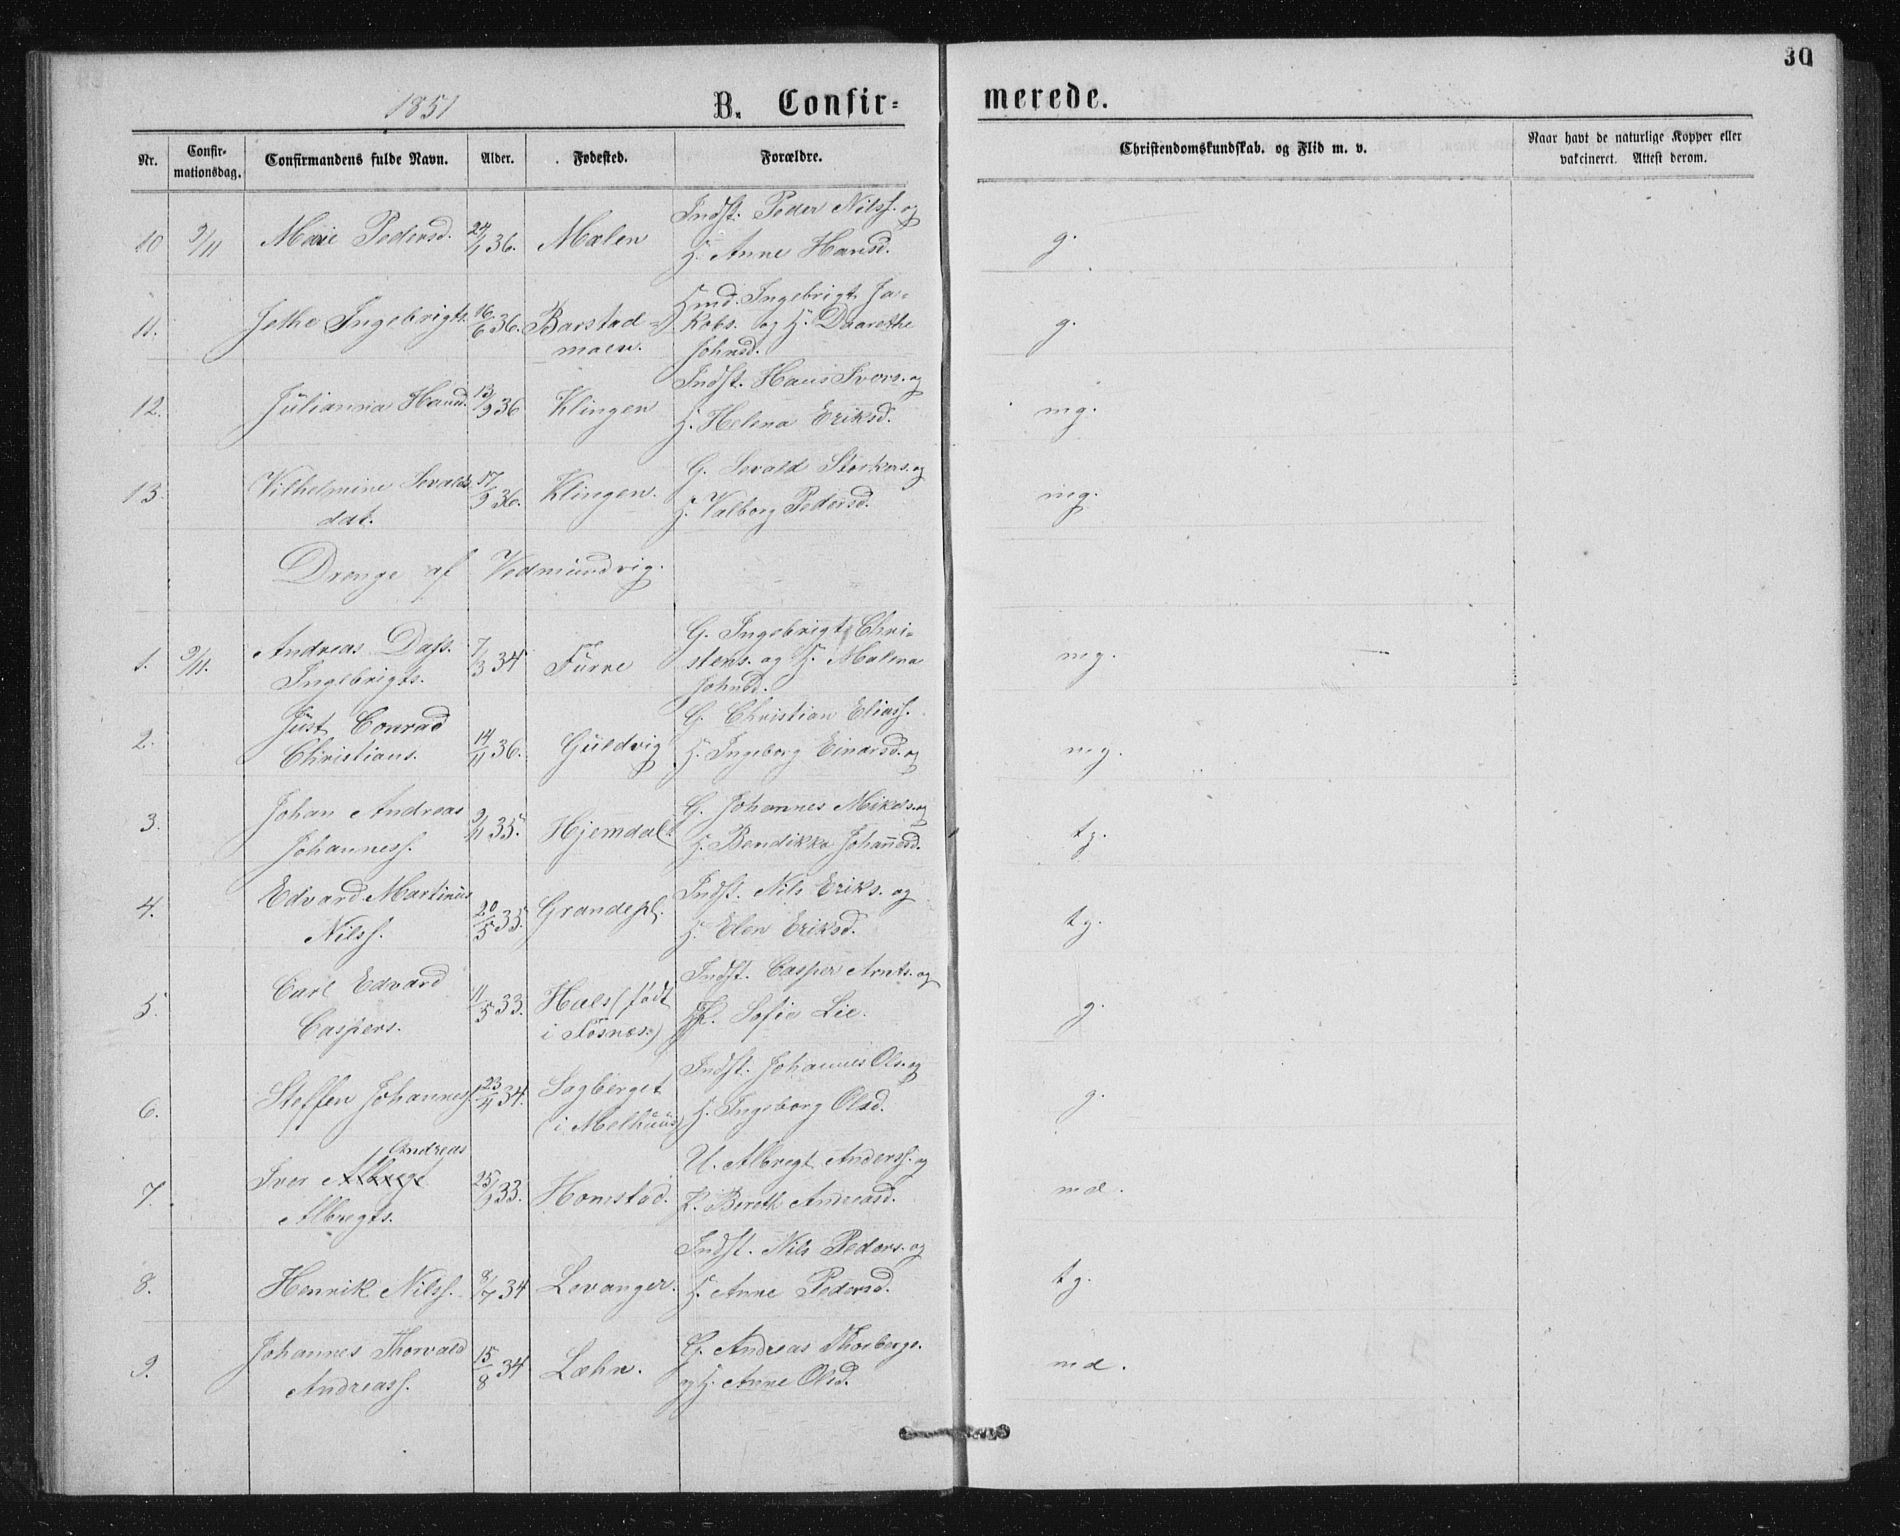 30
1851
B. Confir=
merede.
Nr.
Confir-
mationsdag.
Confirmandens fulde Navn.
Alder.
Fødested.
Forældre.
Christendomskundskab. og Flid m. v.
Naar havt de naturlige Kopper eller
vakcineret. Attest derom.
Indst. Peder Nilss. og
10 9/11 Marie Pedersd. 24/1 36. Mælen g.
H. Anne Hansd.
Hmd. Ingebrigt Ja-
11. Jethe Ingebrigts. 16/6 36. Barstad kobs. og H. Daarethe g.
moen. Johnsd.
Indst. Hans Ivers. og
12. Julianna Hansd. 13/9 36 Klingen mg.
H. Helena Eriksd.
G. Sevald Storkers. og
13. Vilhelmine Sevalds 17/9 36. Klingen. mg.
dat. H. Valborg Pedersd.
Drenge af Vedmundvig.
G. Ingebrigt Chri-
1. 9/11. Andreas Dass. 7/3 34 Furre stens. og H. Malena mg.
Ingebrigts. Johnsd.
Just Conrad G. Christian Eliass.
2. Christians. 14/11 36. Guldvig H. Ingeborg Einarsd. og mg.
Johan Andreas G. Johannes Mikels. og
3. Johanness. 9/11 35. Hjemdal H. Bendikka Johannsd. tg.
Edvard Martinus Indst. Nils Eriks. og
4. Nilss. 20/5 35. Grandepl. H. Elen Eriksd. tg.
Carl Edvard Indst. Casper Arnts. og
5. 11/5 33. Hals (født g.
Caspers. i Fosnæs.) K. Sofie Lie.
Indst. Johannes Ols. og
6. Steffen Johanness. 23/4 34. Sagberget g.
(i Melhuus) H. Ingeborg Olsd.
Andreas U. Albregt Anderss. og
7. Iver Albregt 25/9 33. Homstad. md.
Albregts. K. Bereth Andreasd.
Indst. Nils Peders. og
8. Henrik Nilss. 8/7 34 Levanger. tg.
H. Anne Pedersd.
Johannes Thorvald G. Andreas Thorbergs.
9. 15/8 34 Læhn. md.
Andreass. og H. Anne Olsd.